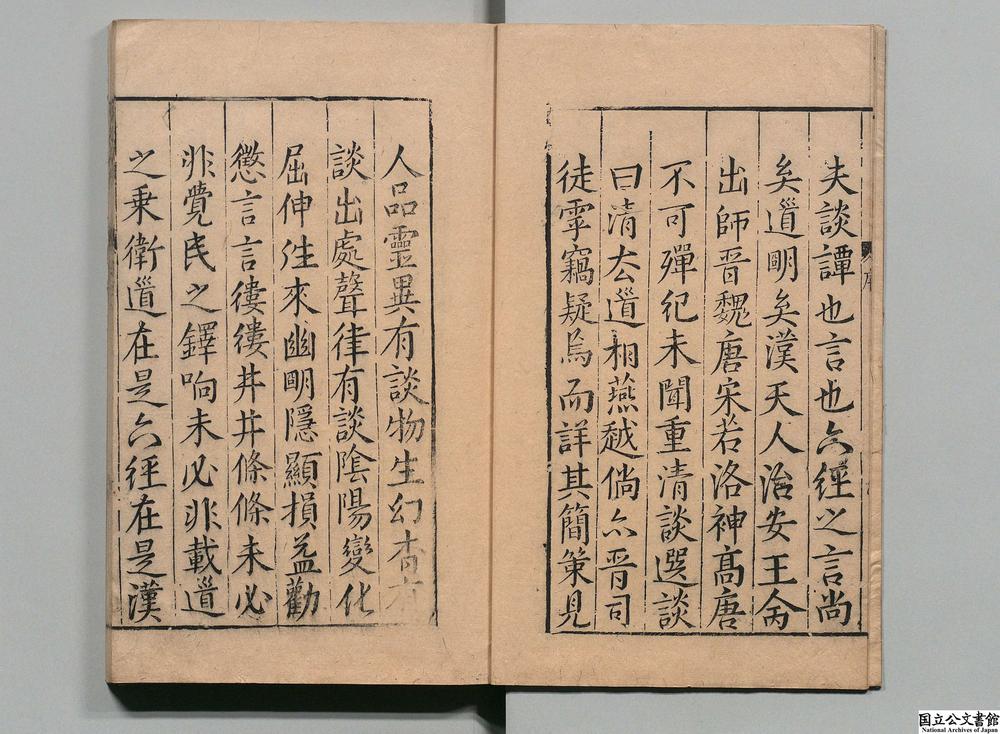 夫談譚也言也六經之言尚
矣道明矣漢天人治安王命
出師晉魏唐宋若洛神高唐
不可殫紀未聞重清談選談
曰清去道相燕越倘亦晉司
徒雩竊疑焉而詳其簡策見
人品靈異有談物生幻杳有
談出處聲律有談陰陽變化
屈伸往來幽明隱顯損益勸
懲言言僂僂井井條條未必
非覺民之鐸响未必非載道
之乗衛道在是六經在是漢
序
国立公文書館
National Archives of Japan